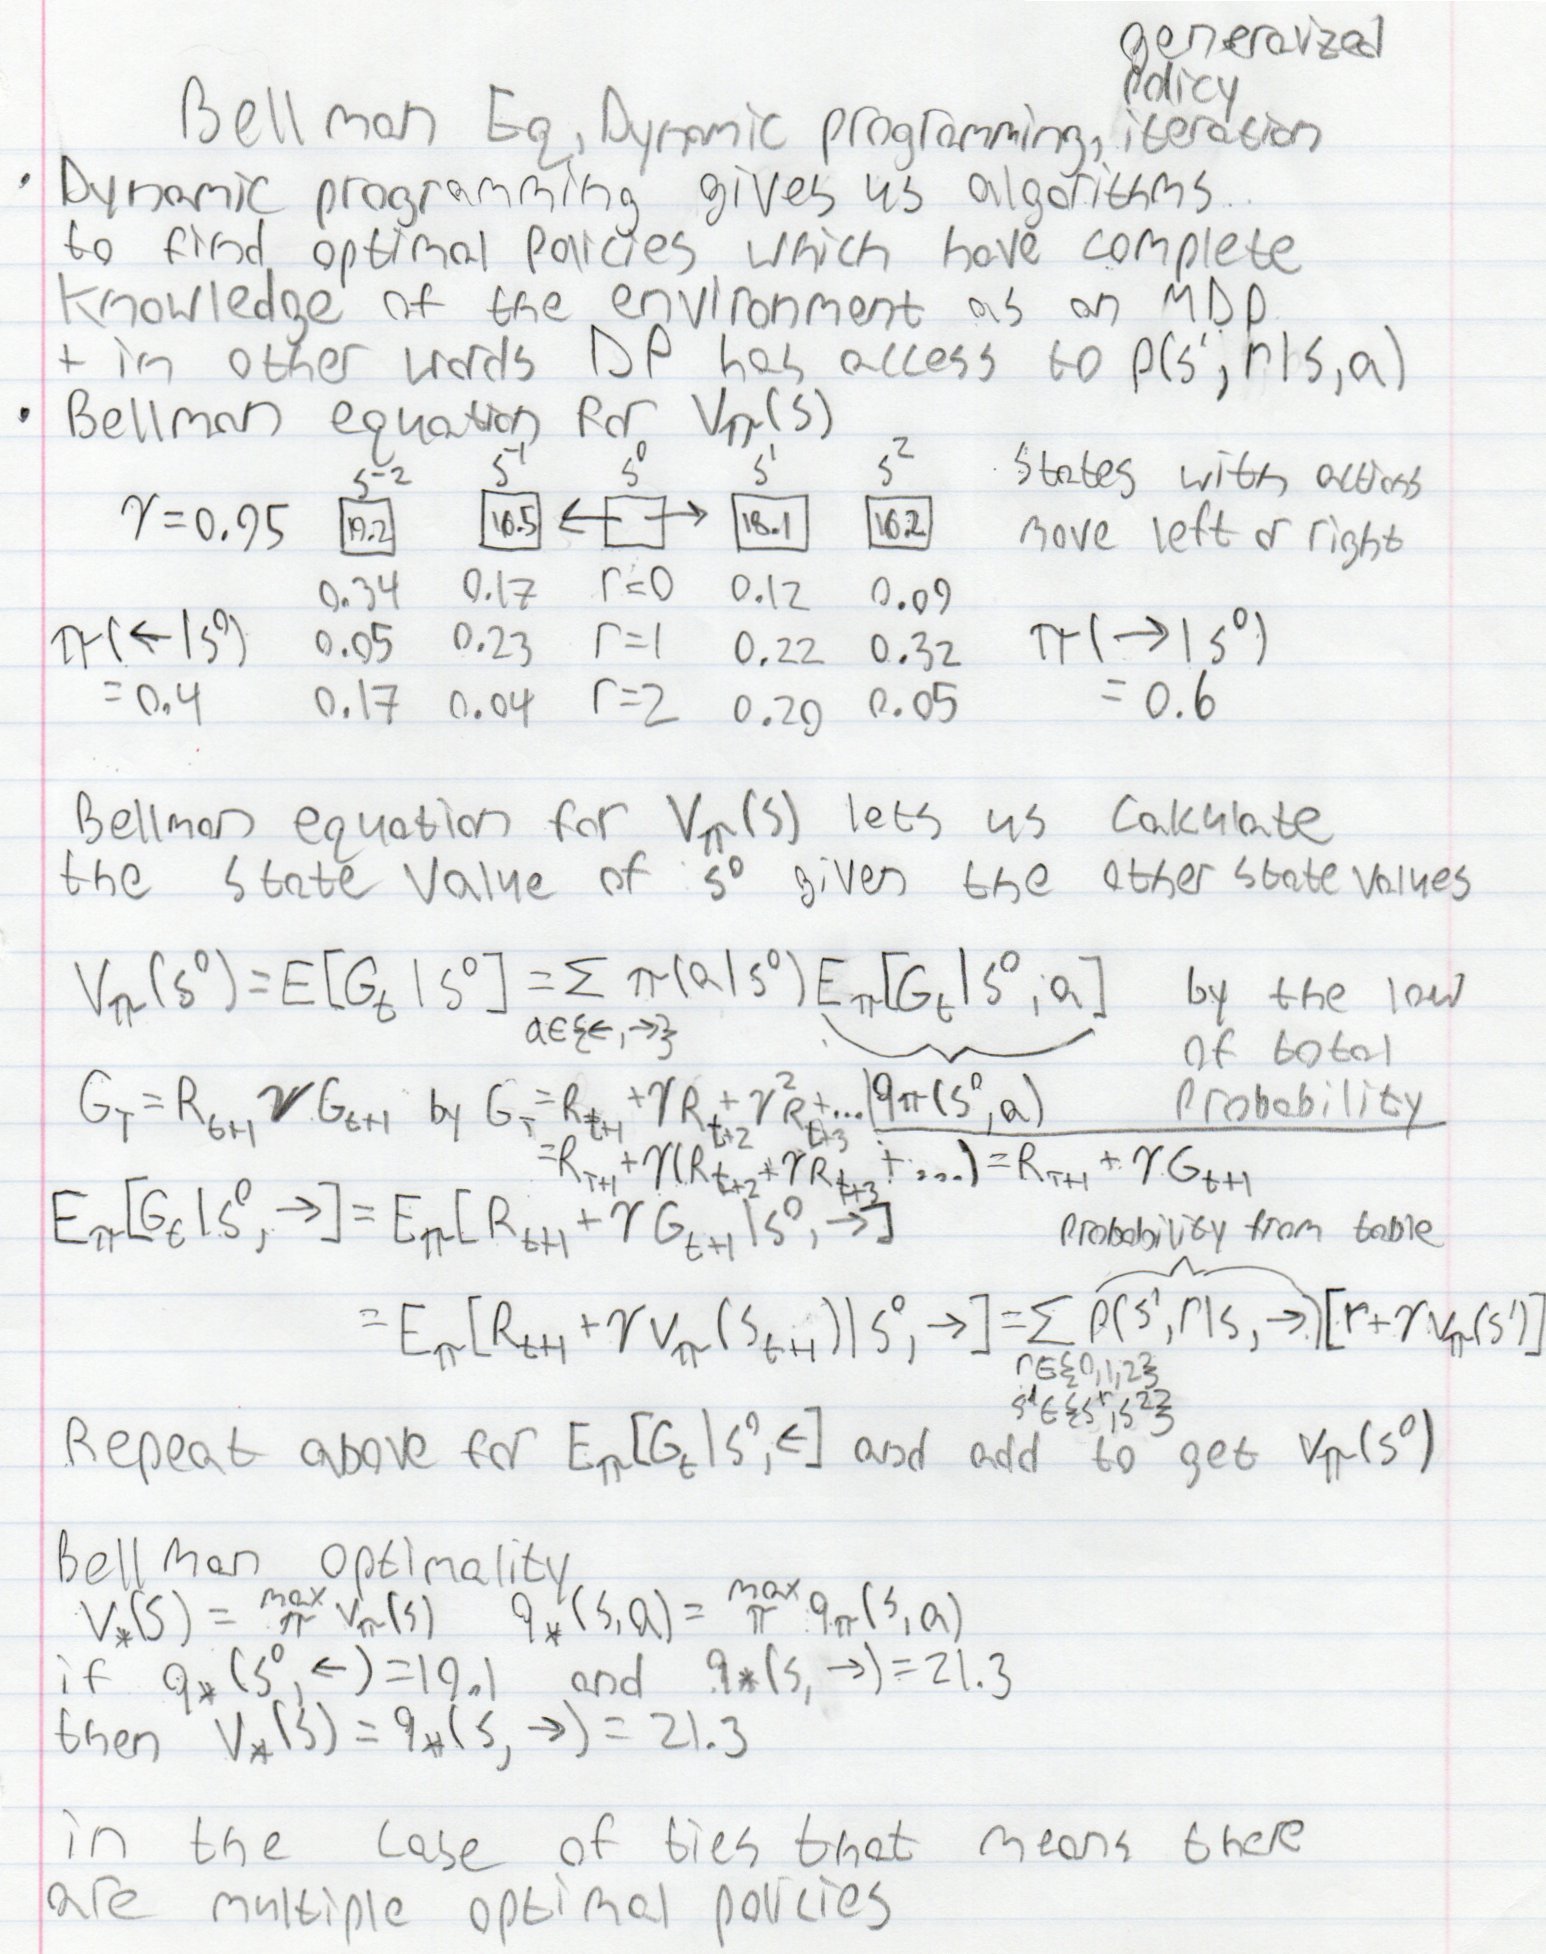 generalized
policy
Bellman Eq, Dynamic programming, iteration
• Dynamic programming gives us algorithms
to find optimal policies which have complete
knowledge of the environment as an MDP
+ in other words DP has access to p(s', r|s, a)
• Bellman equation for Vπ(s)
s⁻² s⁻¹ s⁰ s¹ s² States with actions
γ=0.95 19.2 16.5 ← → 18.1 16.2 move left or right
0.34 0.17 r=0 0.12 0.09
π(←|s⁰) 0.05 0.23 r=1 0.22 0.32 π(→|s⁰)
=0.4 0.17 0.04 r=2 0.20 0.05 = 0.6
Bellman equation for Vπ(s) lets us calculate
the state value of s⁰ given the other state values
Vπ(s⁰) = E[Gt|s⁰] = Σ π(a|s⁰) Eπ[Gt|s⁰, a] by the law
a∈{←,→} of total
GT = Rt+1 γ Gt+1 by GT = Rt+1 + γRt+2 + γ²Rt+3 + ... qπ(s⁰, a) probability
= RT+1 + γ(Rt+2 + γRt+3 + ...) = RT+1 + γGt+1
Eπ[Gt|s⁰, →] = Eπ[Rt+1 + γGt+1|s⁰, →]
probability from table
= Eπ[Rt+1 + γvπ(St+1)|s⁰, →] = Σ p(s', r|s, →)[r+γvπ(s')]
r∈{0,1,2}
s'∈{s¹, s²}
Repeat above for Eπ[Gt|s⁰, ←] and add to get vπ(s⁰)
Bellman optimality
V*(s) = max π vπ(s) q*(s,a) = max π qπ(s,a)
if q*(s⁰, ←) = 19.1 and q*(s, →) = 21.3
then V*(s) = q*(s, →) = 21.3
in the case of ties that means there
are multiple optimal policies